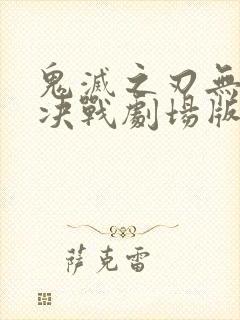 鬼滅之刃無
决戰劇場版
萨克雷